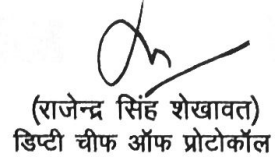 (राजेन्द्र सिंह शेखावत)
डिप्टी चीफ ऑफ प्रोटोकॉल